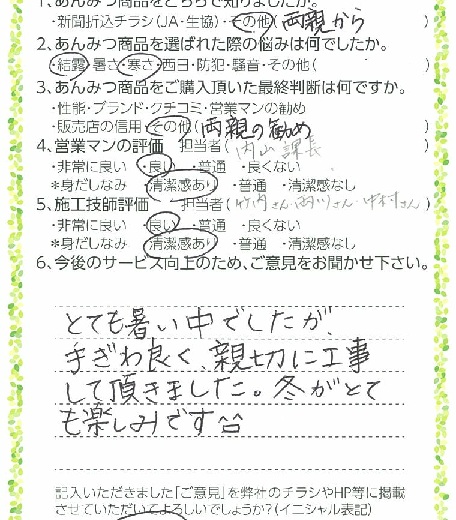 1、あんみつ商品をどちらで知りましたか。
・新聞折込チラシ(JA・生協)・その他(両親から)
2、あんみつ商品を選ばれた際の悩みは何でしたか。
・結露・暑さ・寒さ・西日・防犯・騒音・その他( )
3、あんみつ商品をご購入頂いた最終判断は何ですか。
・性能・ブランド・クチコミ・営業マンの勧め
・販売店の信用・その他(両親の勧め)
4、営業マンの評価 担当者(内山課長)
・非常に良い ・良い ・普通 ・良くない
*身だしなみ ・清潔感あり ・普通 ・清潔感なし
5、施工技師評価 担当者(竹内さん 西川さん・中村さん)
・非常に良い ・良い ・普通 ・良くない
*身だしなみ ・清潔感あり ・普通 ・清潔感なし
6、今後のサービス向上のため、ご意見をお聞かせ下さい。
とても暑い中でしたが、
手ぎわ良く、親切に工事
して頂きました。冬がとて
も楽しみです^^
記入いただきました「ご意見」を弊社のチラシやHP等に掲載
させていただいてよろしいでしょうか?(イニシャル表記)